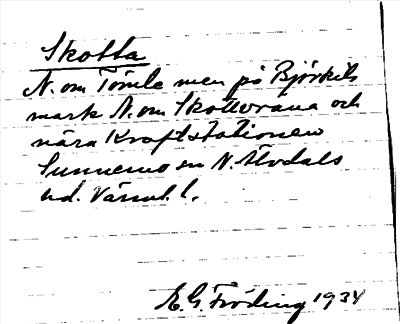 Skotta
N. om Tömle men på Björkils
mark N. om Skottorana och
nära Kraftstationen
Sunnemo sn N. Älvdals
hd. Värml. l.
E. G. Fröding 1934